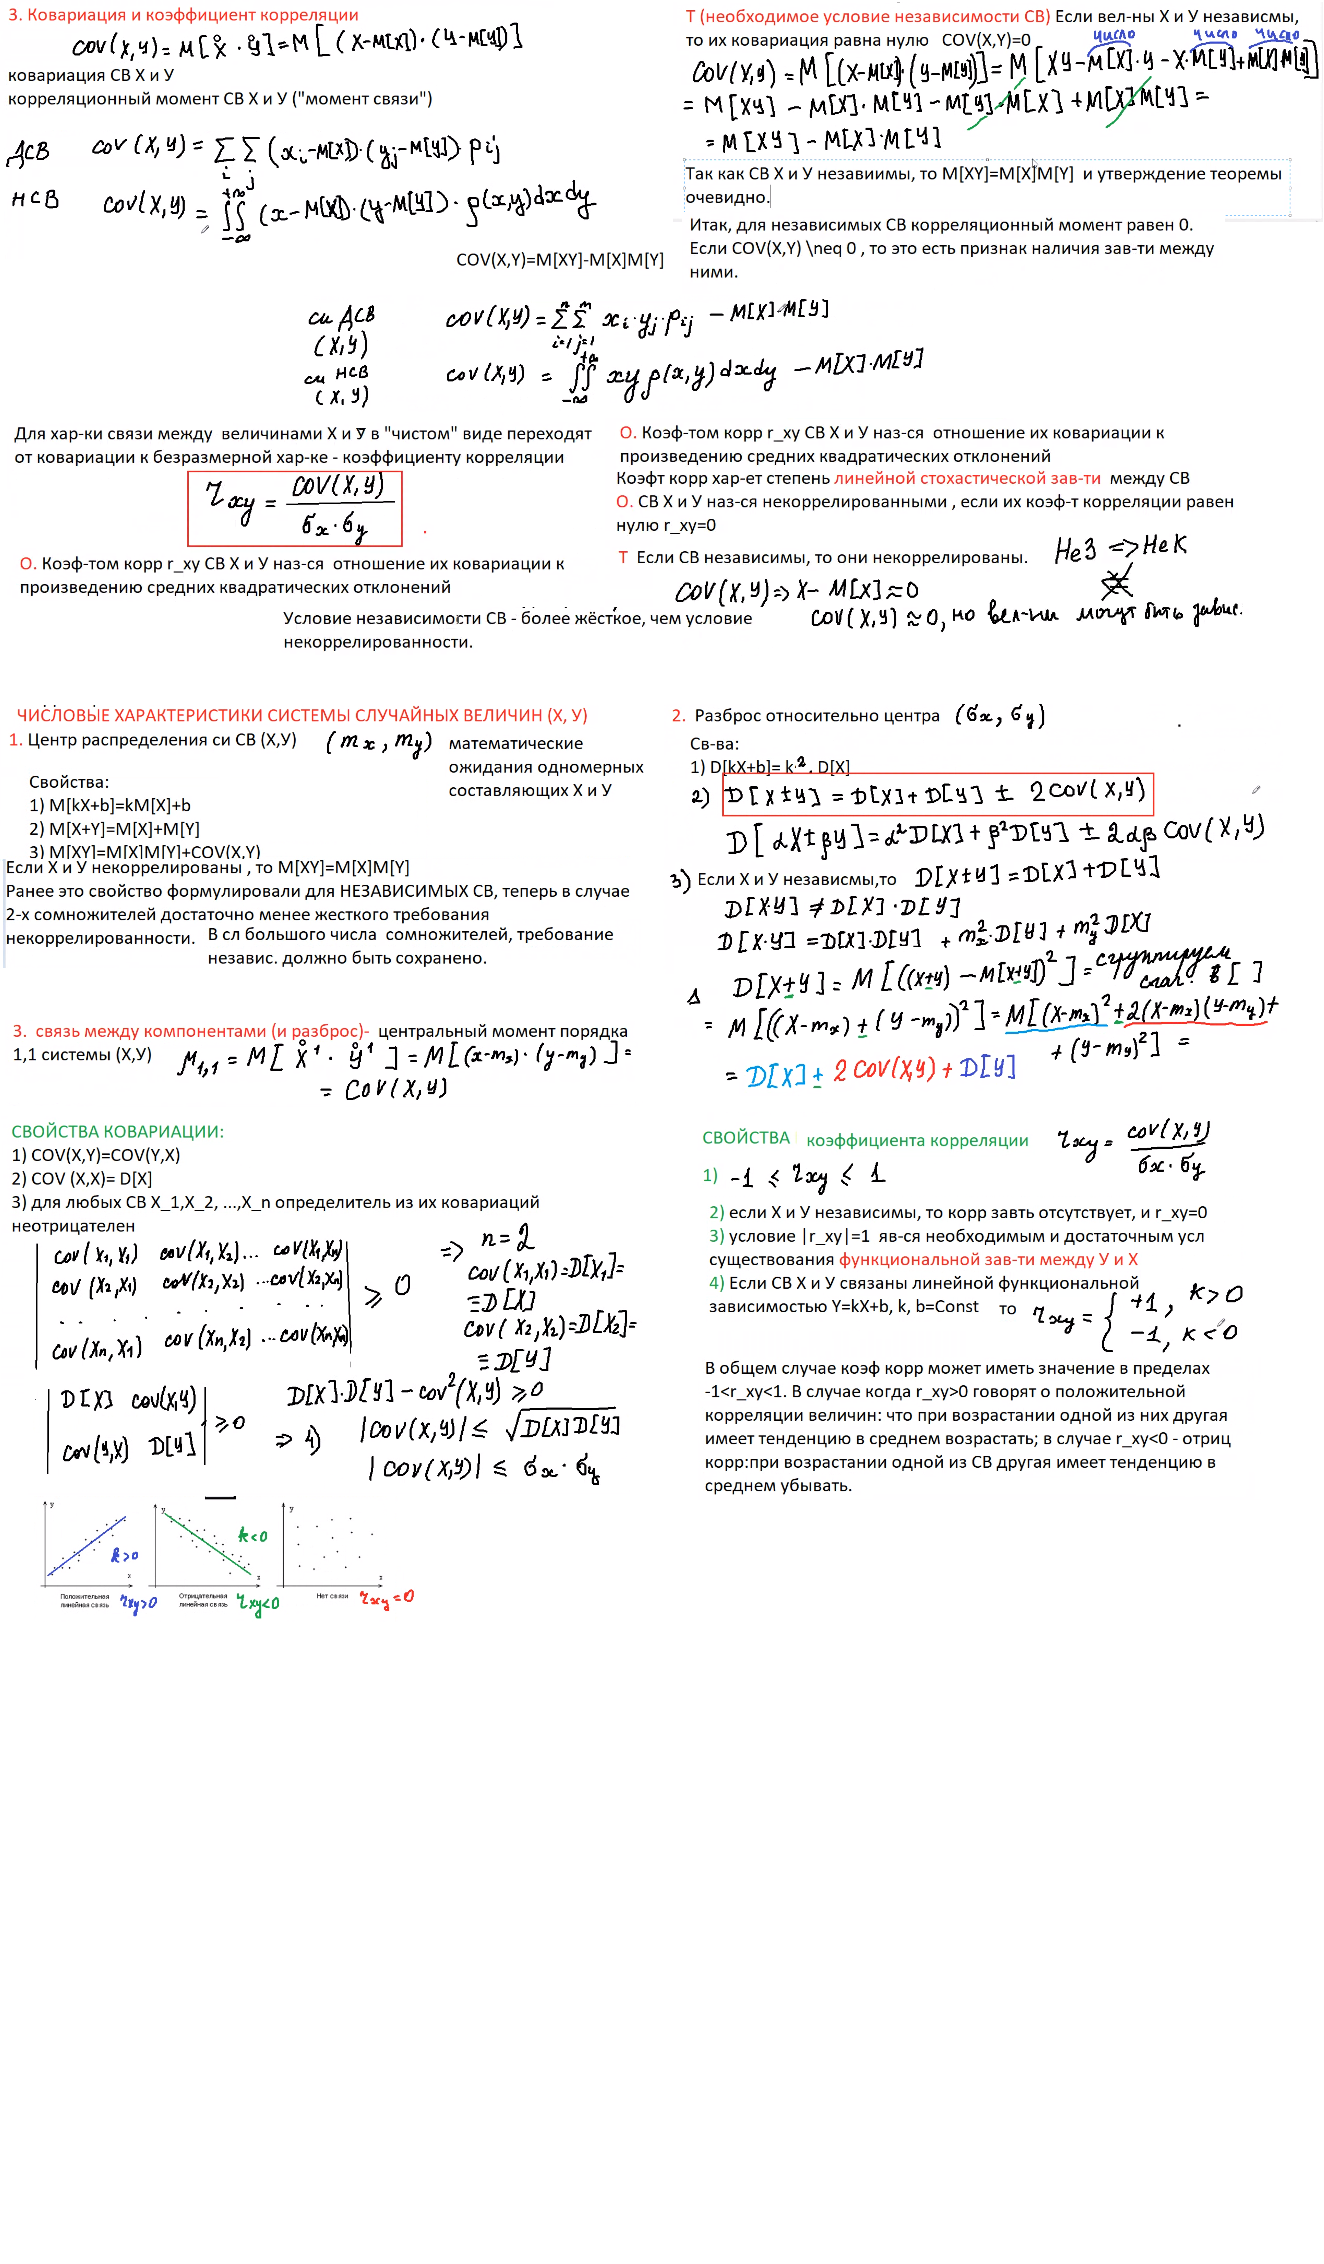 3. Ковариация и коэффициент корреляции
cov(x,y) = M[X̊ · Y̊] = M[(X-M[X])·(Y-M[Y])]
ковариация СВ X и У
корреляционный момент СВ X и У ("момент связи")
ДСВ cov(X,Y) = Σ_i Σ_j (x_i-M[X])·(y_j-M[Y]) p_ij
НСВ cov(X,Y) = ∬_{-∞}^{+∞} (x-M[X])·(y-M[Y])·p(x,y)dxdy
COV(X,Y)=M[XY]-M[X]M[Y]
Т (необходимое условие независимости СВ) Если вел-ны X и У независмы,
то их ковариация равна нулю COV(X,Y)=0
число число число
COV(X,Y) = M[(X-M[X])·(Y-M[Y])] = M[XY-M[X]·Y-X·M[Y]+M[X]M[Y]]
= M[XY] - M[X]·M[Y] - M[Y]·M[X] + M[X]M[Y] =
= M[XY] - M[X]·M[Y]
Так как СВ X и У незавиимы, то M[XY]=M[X]M[Y] и утверждение теоремы
очевидно.
Итак, для независимых СВ корреляционный момент равен 0.
Если COV(X,Y) \neq 0 , то это есть признак наличия зав-ти между
ними.
си ДСВ (X,Y) cov(X,Y) = Σ_{i=1}^{n} Σ_{j=1}^{m} x_i·y_j·p_ij - M[X]·M[Y]
си НСВ (X,Y) cov(X,Y) = ∬_{-∞}^{+∞} xy p(x,y)dxdy - M[X]·M[Y]
Для хар-ки связи между величинами X и У в "чистом" виде переходят
от ковариации к безразмерной хар-ке - коэффициенту корреляции
r_xy = COV(X,Y) / (σx·σy)
О. Коэф-том корр r_xy СВ X и У наз-ся отношение их ковариации к
произведению средних квадратических отклонений
О. Коэф-том корр r_xy СВ X и У наз-ся отношение их ковариации к
произведению средних квадратических отклонений
Коэфт корр хар-ет степень линейной стохастической зав-ти между СВ
О. СВ X и У наз-ся некоррелированными , если их коэф-т корреляции равен
нулю r_xy=0
Т Если СВ независимы, то они некоррелированы. НеЗ => НеК
COV(X,Y) => X- M[X]≈0
COV(X,Y)≈0, но вел-ны могут быть завис.
Условие независимости СВ - более жёсткое, чем условие
некоррелированности.
ЧИСЛОВЫЕ ХАРАКТЕРИСТИКИ СИСТЕМЫ СЛУЧАЙНЫХ ВЕЛИЧИН (X, У)
1. Центр распределения си СВ (X,У) (mx, my) математические
ожидания одномерных
составляющих X и У
Свойства:
1) M[kX+b]=kM[X]+b
2) M[X+Y]=M[X]+M[Y]
3) M[XY]=M[X]M[Y]+COV(X,Y)
Если X и У некоррелированы , то M[XY]=M[X]M[Y]
Ранее это свойство формулировали для НЕЗАВИСИМЫХ СВ, теперь в случае
2-х сомножителей достаточно менее жесткого требования
некоррелированности. В сл большого числа сомножителей, требование
независ. должно быть сохранено.
2. Разброс относительно центра (σx, σy)
Св-ва:
1) D[kX+b]= k². D[X]
2) D[X±Y] = D[X]+D[Y] ± 2COV(X,Y)
D[αX±βY]=α²D[X]+β²D[Y] ± 2αβ COV(X,Y)
3) Если X и У независмы,то D[X±Y]=D[X]+D[Y]
D[X·Y] ≠ D[X]·D[Y]
D[X·Y] = D[X]·D[Y] + mx²·D[Y] + my² D[X]
Δ D[X+Y] = M[((X+Y) - M[X+Y])²] = сгруппируем слаг. в [ ]
= M[((X-mx) + (Y-my))²] = M[(X-mx)² + 2(X-mx)(Y-my)+
+ (Y-my)²] =
= D[X] + 2COV(X,Y) + D[Y]
3. связь между компонентами (и разброс)- центральный момент порядка
1,1 системы (X,У) M1,1 = M[X̊¹ · Y̊¹] = M[(X-mx)·(Y-my)] =
= COV(X,Y)
СВОЙСТВА КОВАРИАЦИИ:
1) COV(X,Y)=COV(Y,X)
2) COV (X,X)= D[X]
3) для любых СВ X_1,X_2, ...,X_n определитель из их ковариаций
неотрицателен
| cov(X1,X1) cov(X1,X2)... cov(X1,Xn) |
| cov(X2,X1) cov(X2,X2) ...cov(X2,Xn) | ⩾ 0
| . . . . . . . . |
| cov(Xn,X1) cov(Xn,X2) ...cov(Xn,Xn) |
=> n=2
cov(X1,X1)=D[X1]=
≡D[X]
cov(X2,X2)=D[X2]=
≡D[Y]
| D[X] cov(X,Y) |
| cov(Y,X) D[Y] | ⩾0
D[X]·D[Y]-cov²(X,Y) ⩾0
=> 4) |cov(X,Y)| ≤ √D[X]D[Y]
|cov(X,Y)| ≤ σx·σy
СВОЙСТВА коэффициента корреляции r_xy = cov(X,Y) / (σx·σy)
1) -1 ≤ r_xy ≤ 1
2) если X и У независимы, то корр завть отсутствует, и r_xy=0
3) условие |r_xy|=1 яв-ся необходимым и достаточным усл
существования функциональной зав-ти между У и X
4) Если СВ X и У связаны линейной функциональной
зависимостью Y=kX+b, k, b=Const то r_xy = { +1, k>0
-1, k<0
В общем случае коэф корр может иметь значение в пределах
-1<r_xy<1. В случае когда r_xy>0 говорят о положительной
корреляции величин: что при возрастании одной из них другая
имеет тенденцию в среднем возрастать; в случае r_xy<0 - отриц
корр:при возрастании одной из СВ другая имеет тенденцию в
среднем убывать.
y y y
k>0 k<0
x x x
Положительная линейная связь r_xy>0
Отрицательная линейная связь r_xy<0
Нет связи r_xy=0